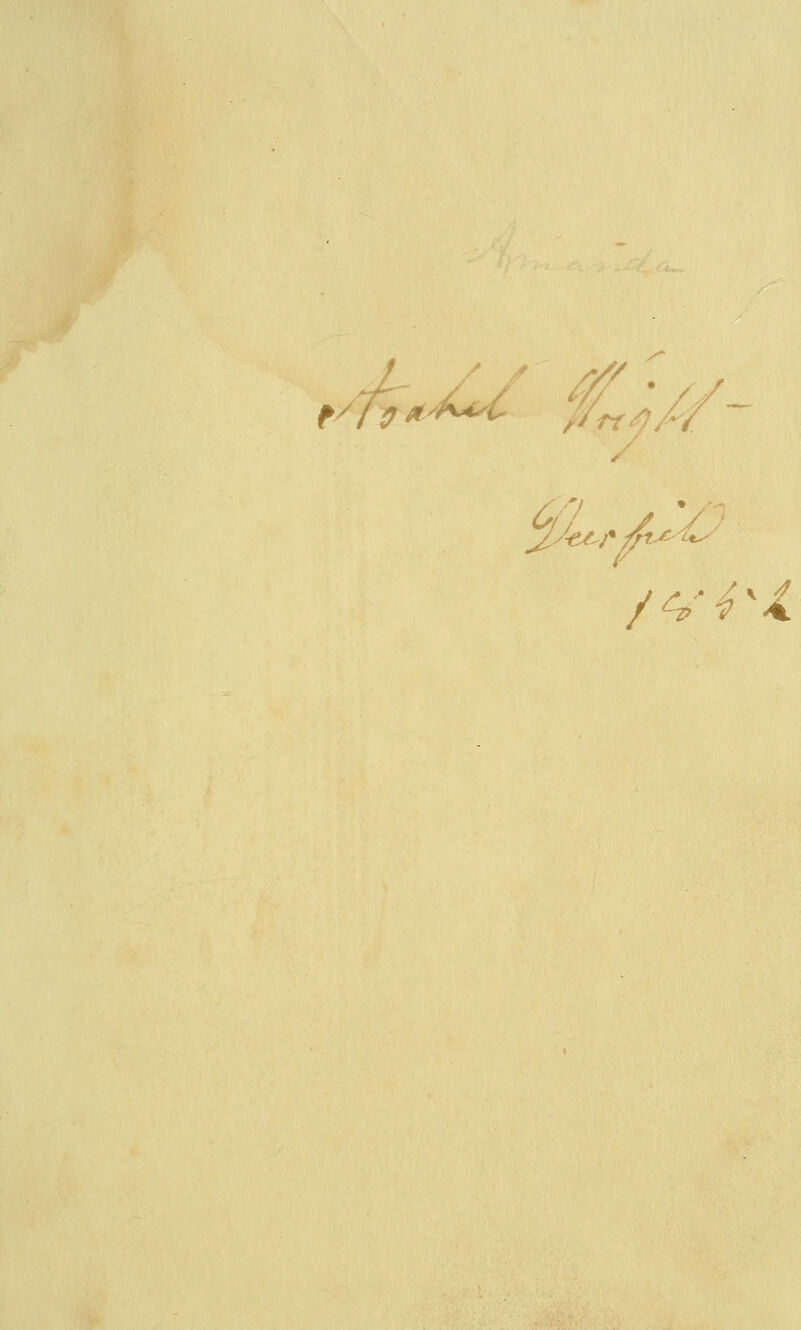 Amanda
Asahel Wright
Deerfield
1852